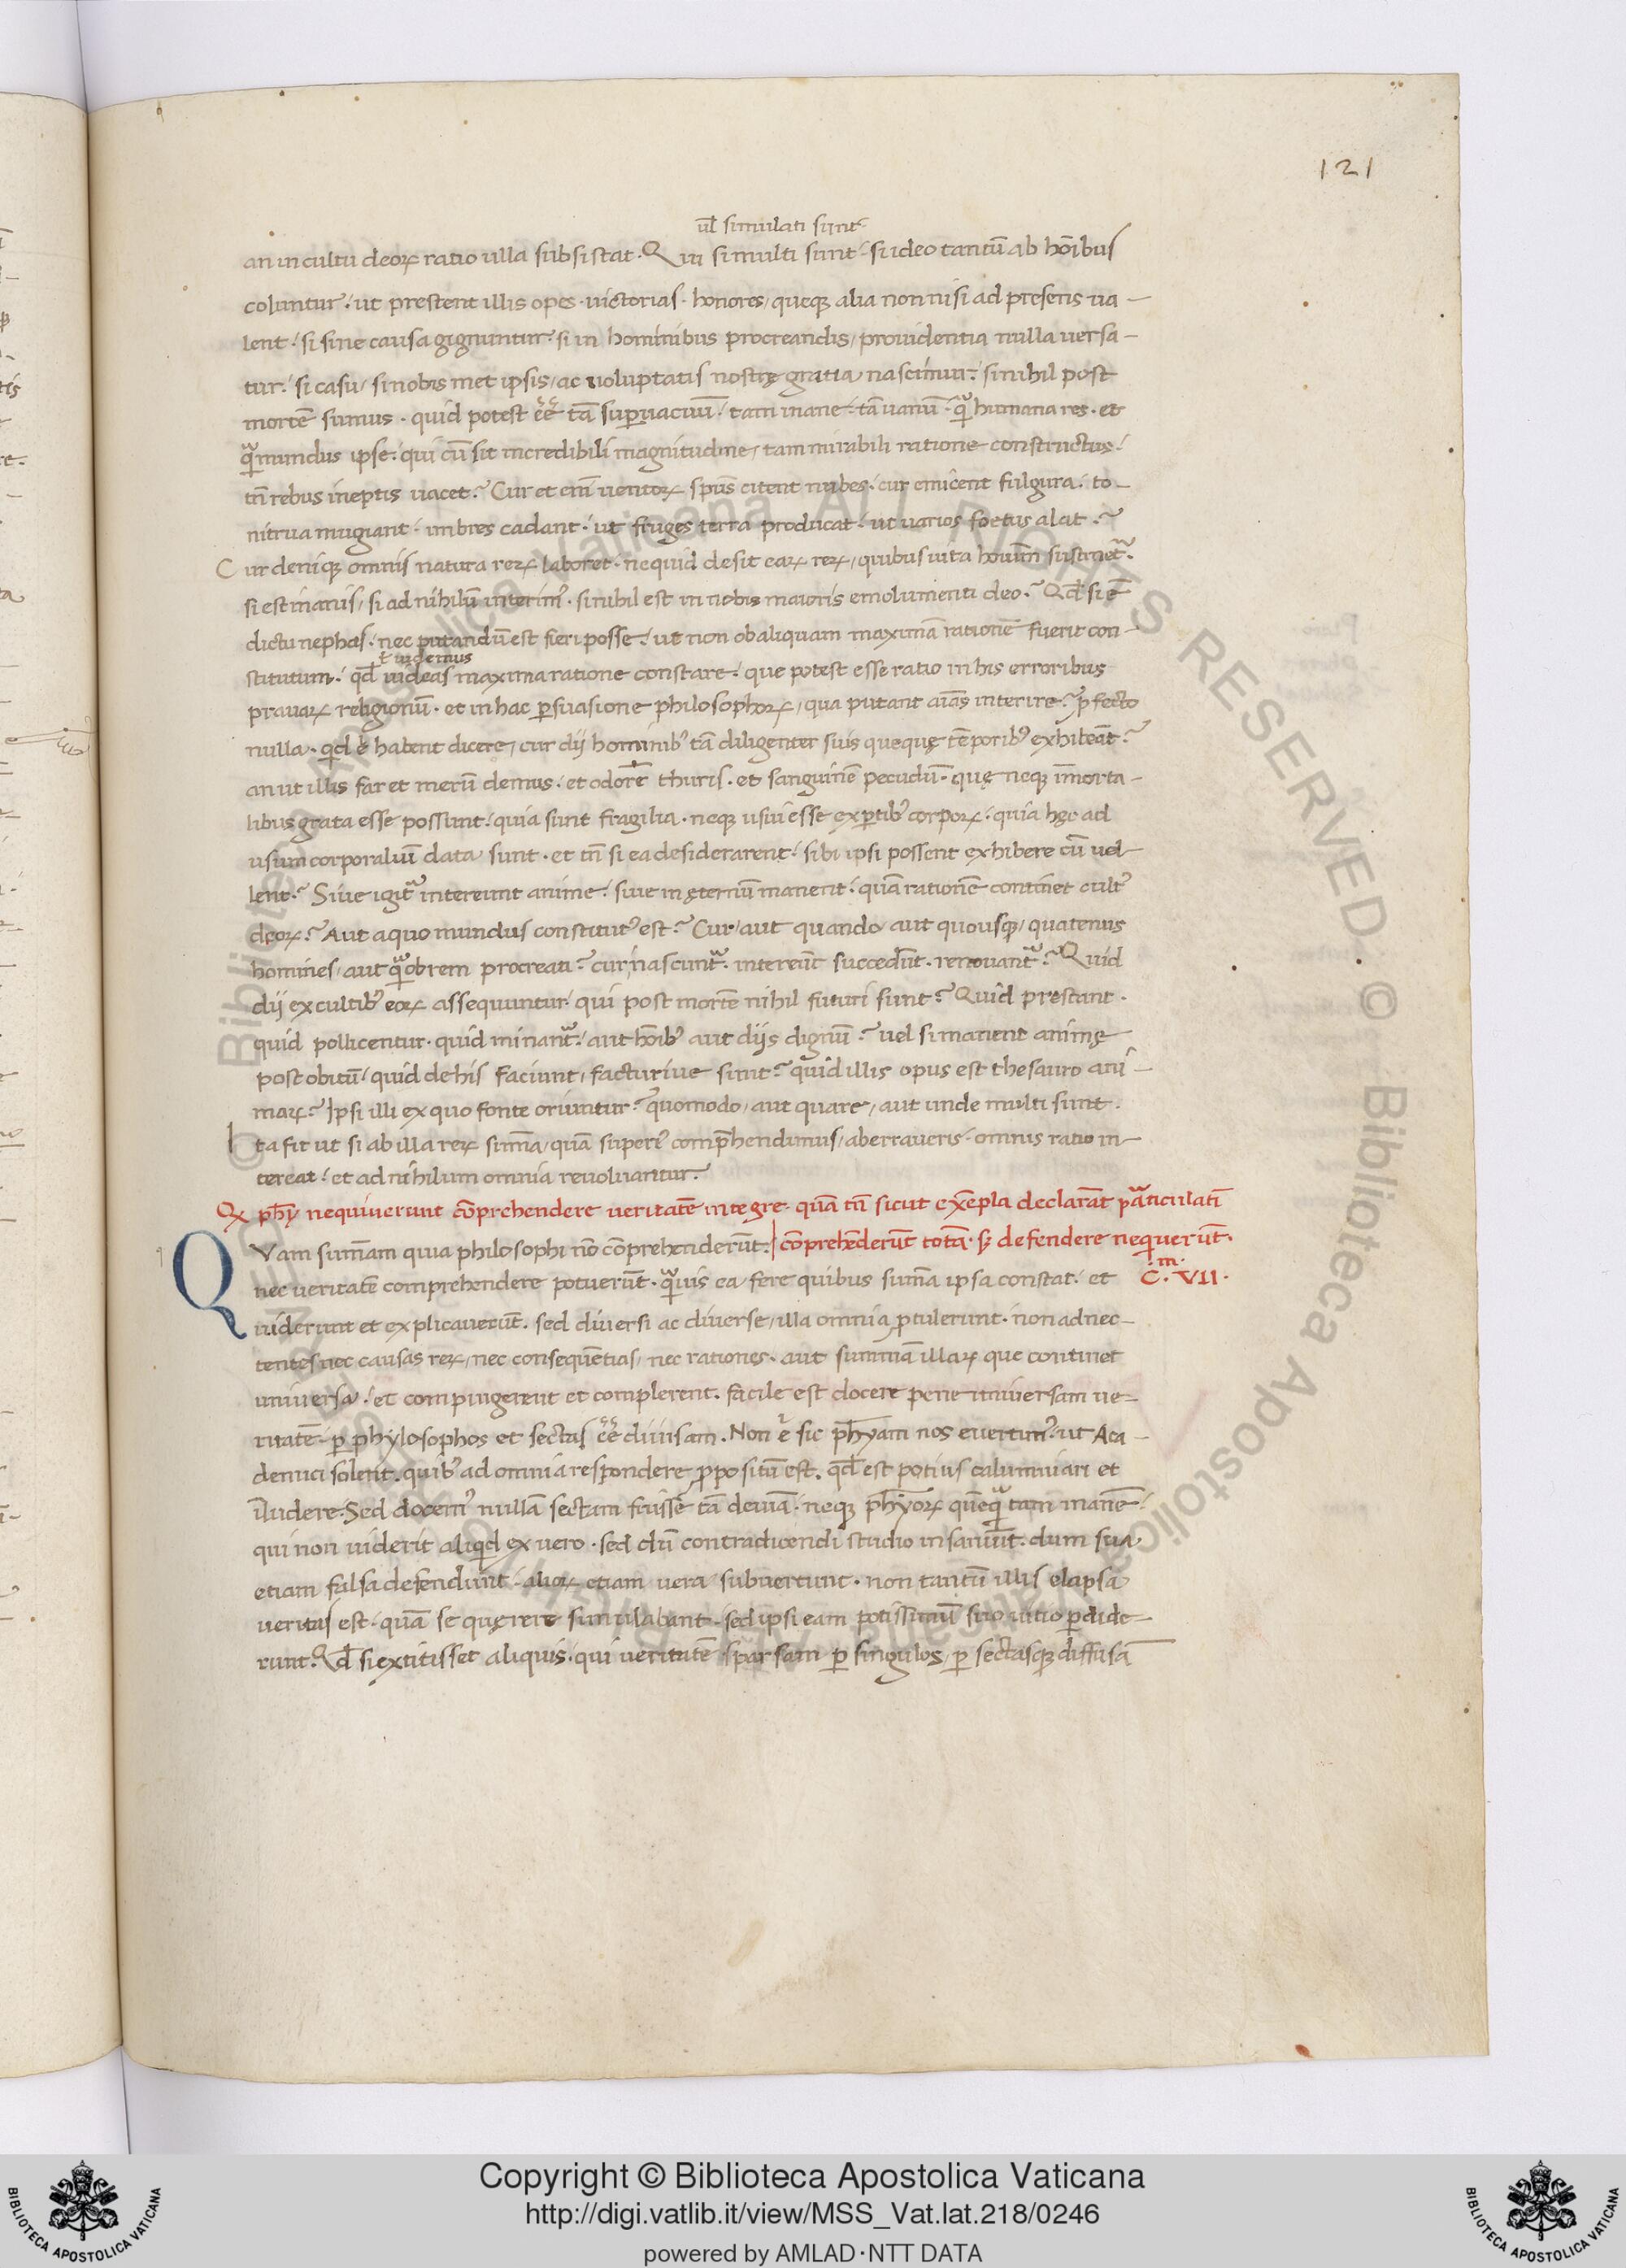 121
ul̄ simulati sunt·
an in cultu deoꝝ ratio ulla subsistat. Qui simulti sunt· si ideo tantū ab hoībus
coluntur· ut prestent illis opes· uictorias· honores/ queqꝫ alia non nisi ad presens ua-
lent· si sine causa gignuntur· si in hominibus procreandis/ prouidentia nulla uersa-
tur· si casu/ si nobis met ipsis/ ac uoluptatis nostrę gratia nascimur· si nihil post
mortē sumus· quid potest eē tā suꝑuacuū· tam inane· tā uanū· qᷓ humana res· et
qᷓ mundus ipse· qui cū sit incredibili magnitudine/ tam mirabili ratione constructus·
tn̄ rebus ineptis uacet? Cur et em̄ uentoꝝ sp̄us citent nubes· cur emicent fulgura· to-
nitrua mugiant· imbres cadant· ut fruges terra producat· ut uarios foetus alat?
Cur deniqꝫ omnis natura reꝝ laboret· nequid desit eaꝝ reꝝ/ quibus uita houīm sustinetᷓ·
si est inanis/ si ad nihilū interim᾽· si nihil est in nobis maioris emolumenti deo? Qd̄ si ē
dictu nephas· nec putandū est fieri posse· ut non ob aliquam maximā rationē fuerit con-
ł uidemus
stitutum· qd̄ uideas maxima ratione constare· que potest esse ratio in his erroribus
prauaꝝ religionū· et in hac ꝑsuasione philosophoꝝ/ qua putant aīas interire? ꝓfecto
nulla· qd ē habent dicere/ cur dij hominibꝰ tā diligenter suis quequę tēporibꝰ exhibeāt?
an ut illis far et merū demus· et odorē thuris· et sanguinē pecudū· quę neqꝫ īmorta-
libus grata esse possunt· quia sunt fragilia· neqꝫ usui esse exꝑtibꝰ corpoꝝ· quia hęc ad
usum corporaliū data sunt· et tn̄ si ea desiderarent· sibi ipsi possent exhibere cū uel-
lent? Siue igitᷓ intereunt anime· siue in ęternū manent· quā rationē continet cultꝰ
deoꝝ? Aut a quo mundus constitutꝰ est? Cur/ aut quando/ aut quousqꝫ/ quatenus
homines/ aut qᷓobrem procreati? cur nascuntᷓ· intereūt succedūt· renouantᷓ? Quid
dij ex cultibꝰ eoꝝ assequuntur· qui post mortē nihil futuri sunt? Quid prestant·
quid pollicentur· quid minantᷓ/ aut hoībꝰ aut dijs dignū? uel si manent animę
post obitū/ quid de his faciunt/ facturiue sunt? quid illis opus est thesauro ani-
maꝝ? Ipsi illi ex quo fonte oriuntur? quomodo/ aut quare/ aut unde multi sunt·
Ita fit ut si ab illa reꝝ sūma/ quā superiꝰ comp̄hendimus/ aberraueris· omnis ratio in-
tereat· et ad nihilum omnia reuoluantur·
Qꝫ ph̄y nequiuerunt cōprehendere ueritatē integre· quā tn̄ sicut exēpla declarāt pᷓticulatī
QVam sumam quia philosophi nō cōprehenderūt· | cōprehēderūt totā· sꝫ defendere neqiuerūt·
nec ueritatē comprehendere potuerūt· qᷓuis ea fere quibus sūma ipsa constat· et C·m· VII·
uiderunt et explicauerūt· sed diuersi ac diuerse/ illa omnia ꝓtulerunt· non adnec-
tentes nec causas reꝝ/ nec consequētias/ nec rationes· aut summā illaꝝ que continet
uniuersa· et compingerent et complerent· facile est docere pene uniuersam ue-
ritatē· ꝑ phylosophos et sectas eē diuisam· Non .n. sic ph̄yam nos euertimꝰ· ut Aca-
demici solent· quibꝰ ad omnia respondere ꝓpositū est· qd̄ est potius calumniari et
īludere· Sed docemꝰ nullā sectam fuisse tā deuiā· neqꝫ ph̄yoꝝ quēqᷓ tam inanē·
qui non uiderit aliqid ex uero· sed dū contradicendi studio insaniūt· dum sua
etiam falsa defendunt· alioꝝ etiam uera subuertunt· non tantū illis elapsa
ueritas est· quā se quęrere simulabant· sed ipsi eam potissimū suo uitio ꝑdide-
runt· Qd̄ si extitisset aliquis· qui ueritatē sparsam ꝑ singulos/ ꝑ sectasqꝫ diffusā
Copyright © Biblioteca Apostolica Vaticana
http://digi.vatlib.it/view/MSS_Vat.lat.218/0246
powered by AMLAD·NTT DATA